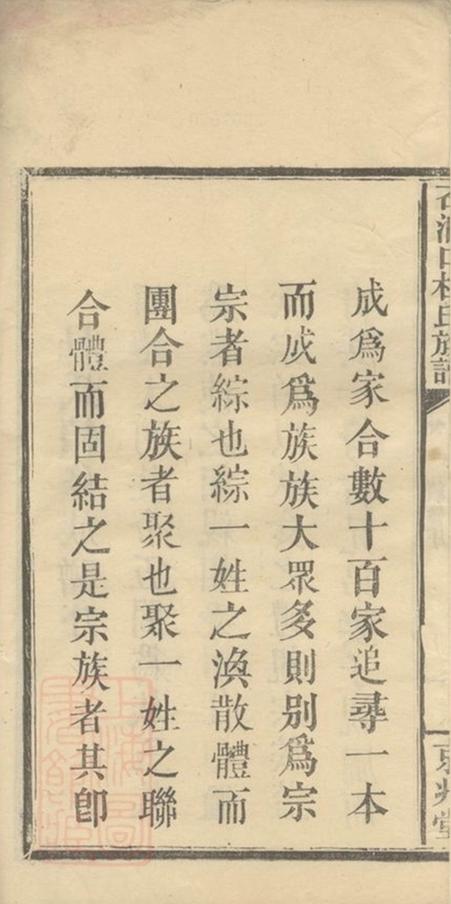 成爲家合數十百家追尋一本
而成爲族族大眾多則别爲宗
宗者綜也綜一姓之渙散體而
團合之族者聚也聚一姓之聯
合體而固結之是宗族者其卽